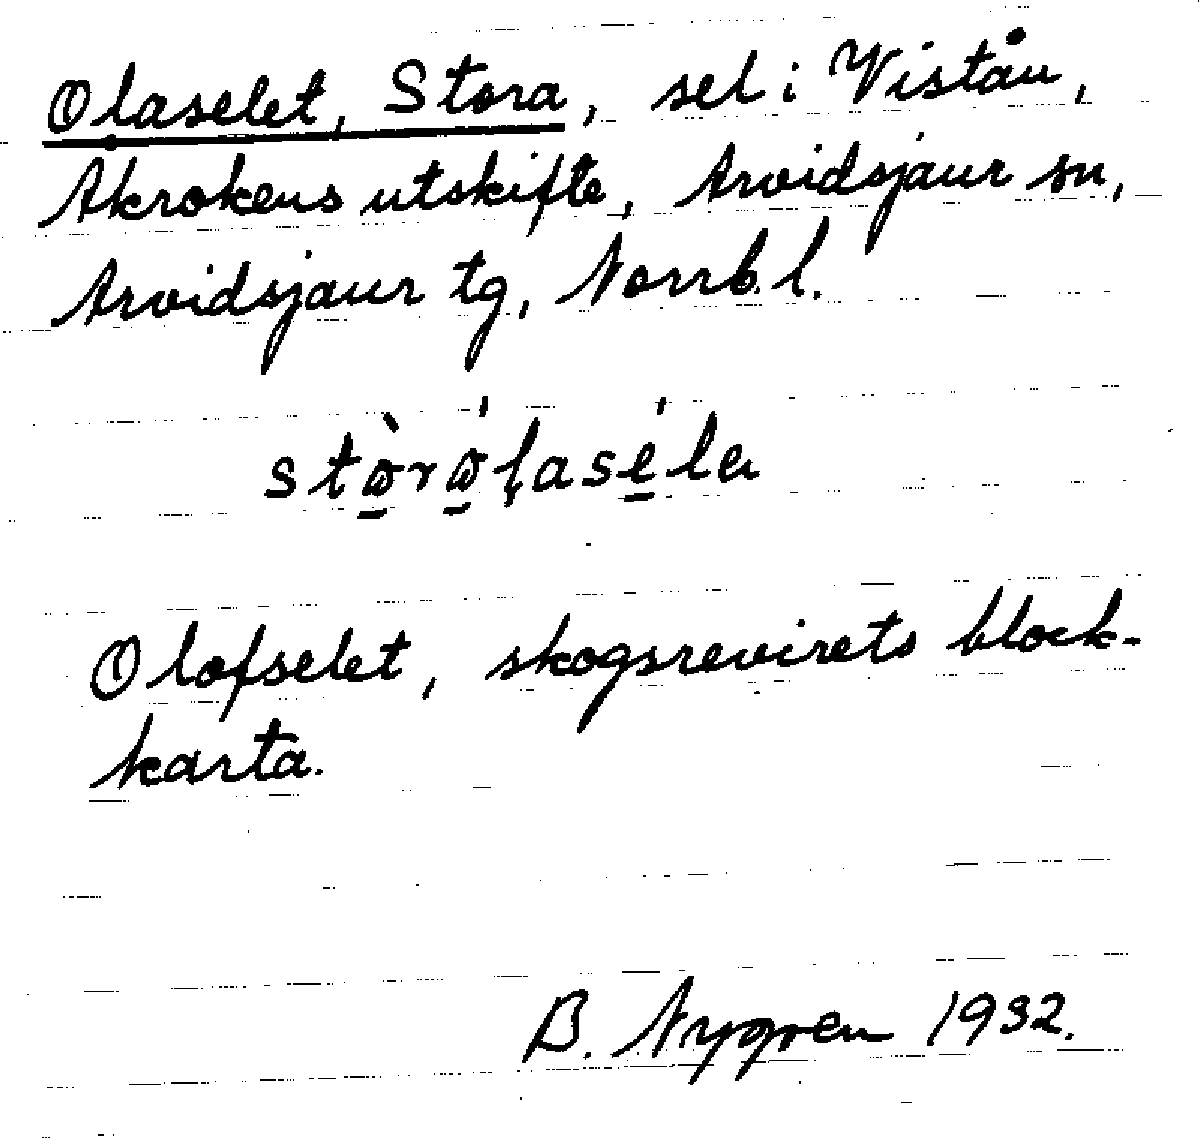 Olaselet, Stora, sel i Vistån,
Åkrokens utskifte, Arvidsjaur sn,
Arvidsjaur tg, Norrb. l.
Olofselet, skogsrevirets block-
karta.
B. Nygren 1932.